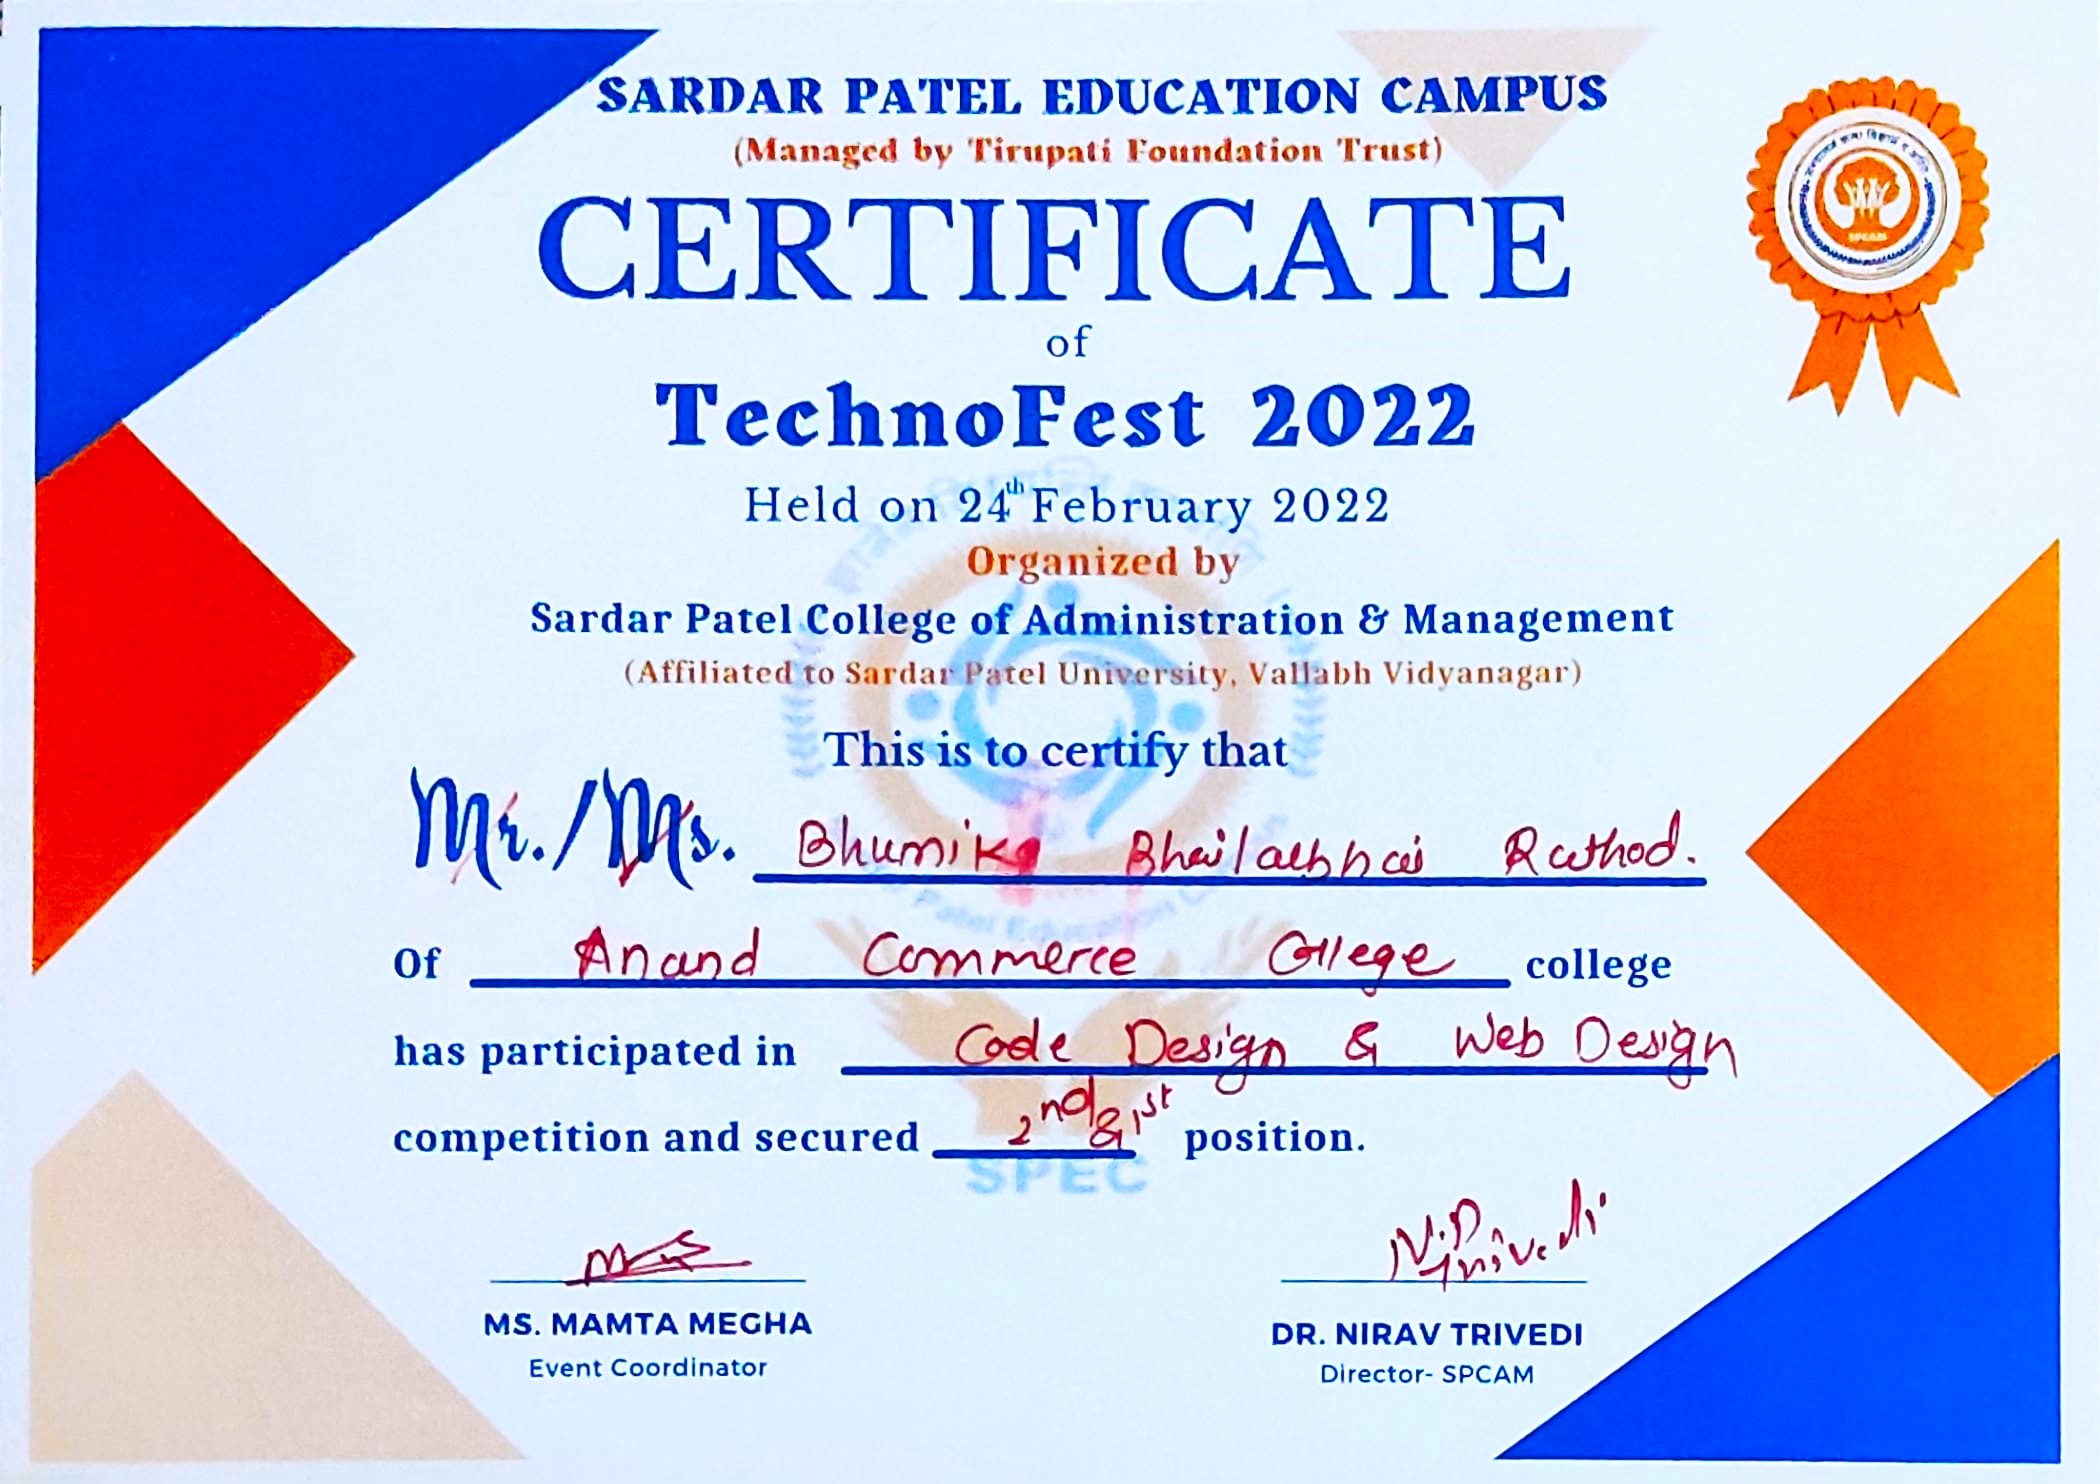 SARDAR PATEL EDUCATION CAMPUS
(Managed by Tirupati Foundation Trust)
CERTIFICATE
of
TechnoFest 2022
Held on 24th February 2022
Organized by
Sardar Patel College of Administration & Management
(Affiliated to Sardar Patel University, Vallabh Vidyanagar)
This is to certify that
Mr./Ms. Bhumika Bhailalbhai Rathod.
Of Anand Commerce College college
has participated in Code Design & Web Design
competition and secured 2nd & 1st position.
SPEC
N.D Trivedi
MS. MAMTA MEGHA
Event Coordinator
DR. NIRAV TRIVEDI
Director- SPCAM
SPCAM